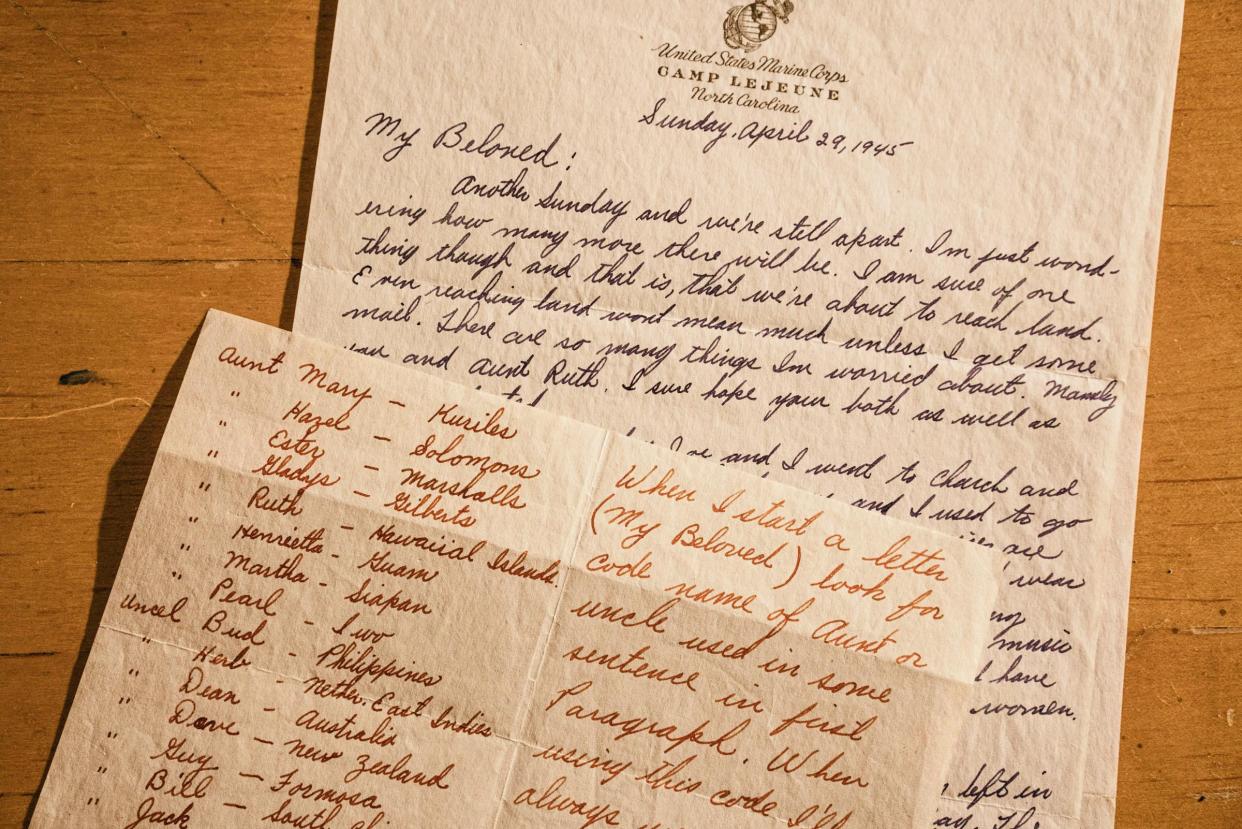 United States Marine Corps
CAMP LEJEUNE
North Carolina
Sunday, April 29, 1945
My Beloved:
Another Sunday and we're still apart. I'm just wond-
ering how many more there will be. I am sure of one
thing though and that is, that we're about to reach land.
Even reaching land won't mean much unless I get some
mail. There are so many things I'm worried about. Mainly
you and Aunt Ruth. I sure hope your both as well as
and I went to church and
and I used to go
are
wear
music
have
women.
left in
Aunt Mary - Kuriles
" Hazel - Solomons
" Ester - Marshalls
" Gladys - Gilberts
" Ruth - Hawaiial Islands.
" Henrietta - Guam
" Martha - Siapan
" Pearl - Iwo
Uncel Bud - Philippines
" Herb - Nether. East Indies
" Dean - Australia
" Dave - New Zealand
" Guy - Formosa
" Bill - South
" Jack
When I start a letter
(My Beloved) look for
code name of Aunt or
uncle used in some
sentence in first
Paragraph. When
using this code I'll
always